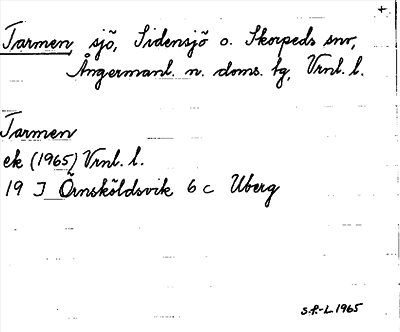 +
Tarmen, sjö, Sidensjö o. Skorpeds snr,
Ångermanl. n. doms. tg, Vrnl. l.
Tarmen
ek (1965) Vrnl. l.
19 J Örnsköldsvik 6 c Uberg
S.F.-L 1965